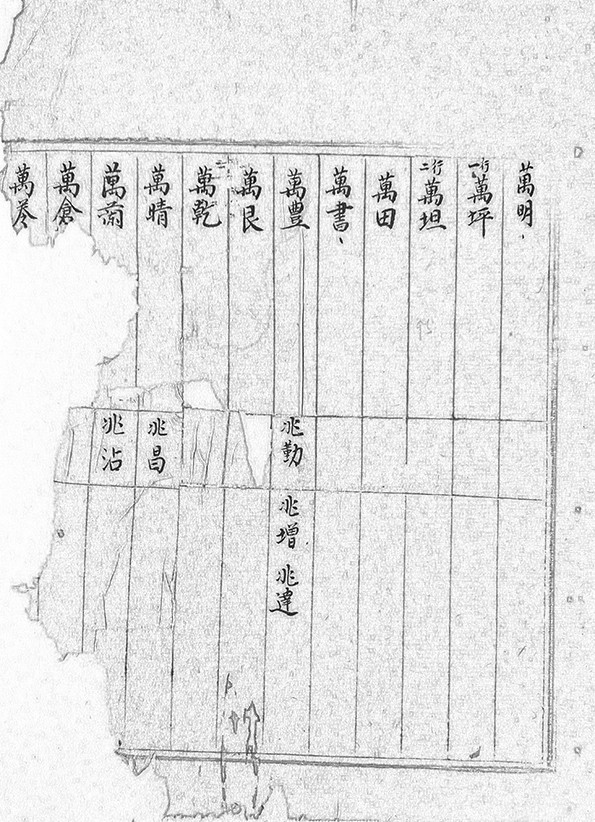 萬明
一行萬坪
二行萬坦
萬田
萬書
萬豐 兆勤 兆增 兆達
萬良
萬乾
萬晴 兆昌
萬蘭 兆沾
萬倉